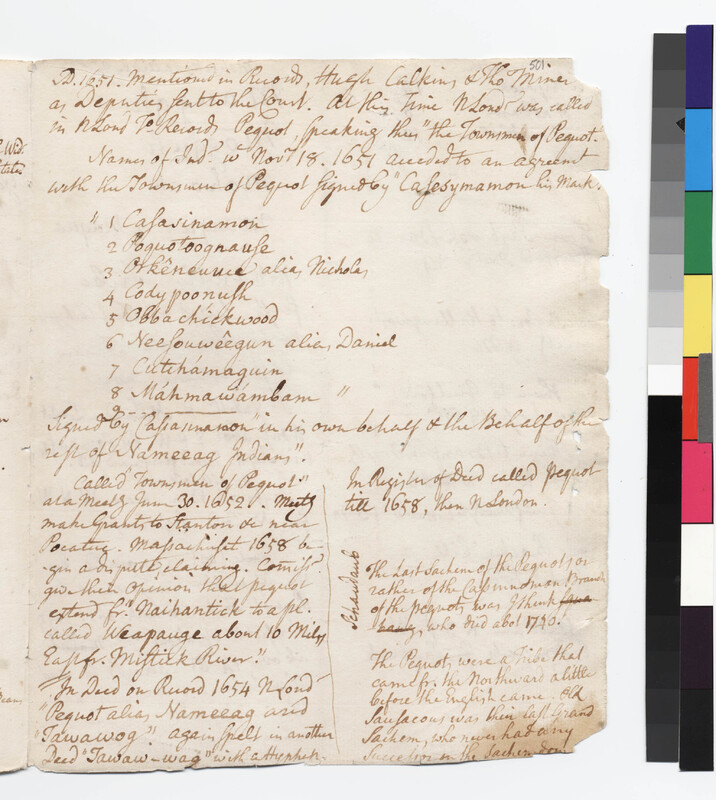 501
AD. 1651. Mentioned in Records, Hugh Calkins & Tho Miner
as Deputies sent to the Court. At this time NLondn was called
in NLond Tn Records Pequot, speaking thus "the Townsmen of Pequot.
Names of Indn. wo Novr 18. 1651 acceded to an agreemt
with the Townsmen of Pequot signed by "Casesymamon his Mark.
" 1 Casasinamon
2 Poquotoognause
3 Orkêneuuce alias Nicholas
4 Codypoonush
5 Obbachickwood
6 Neesouwêegun alias Daniel
7 Cutchámaquin
8 Máhmawámbam "
Signed by Cassasinamon "in his own behalf & the Behalf of the
rest of Nameeag Indians".
Called "Townsmen of Pequot"
at a Meetg June 30. 1652. Meetg
make Grants to Stanton &c near
Pocatuc. Massachuset 1658 be-
gin a dispute, claiming. Comissrs
give their Opinion that pequot
extend fr. Naihantick to a pl.
called Weapauge about 10 Miles
East fr. Mistick River."
In Deed on Record 1654 NLond
"Pequot alias Nameeag and
Tawawog". again spelt in another
Deed "Tawaw-wag" with a Hyphen.
In Register of Deed called pequot
till 1658, then NLondon.
The last Sachem of the Pequots or
rather of the Branch
of the pequots was I think
who died abot 1740.
The Pequots were a Tribe that
came fr. the Northward a little
before the English came. Old
Sausacous was their last Grand
Sachem, who never had any
Successor in the Sachemdom